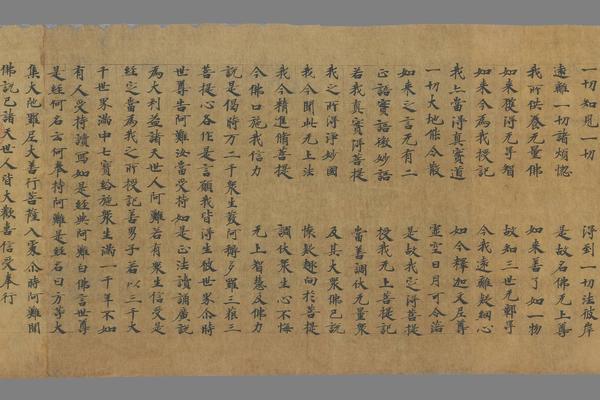 一切知見一切　得到一切法彼岸
遠離一切諸煩惱　是故名佛无上尊
我所供養无量佛　如来善了如一物
如来獲得无㝵智　故知三世无鄣㝵
如来今為我授記　令我遠離疑網心
我上當得真實道　如今釋迦文尼尊
一切大地能令散　虛空日月可令落
如来之言无有二　是故我定得菩提
正語實語微妙語　授我无上菩提記
若我真實得菩提　當善調伏无量眾
我之所得淨妙國　及其大眾佛已說
我今聞此无上法　趣向於菩提
我今精進脩菩提　調伏眾生心不悔
今佛口施我信力　无上智慧及佛力
說是偈時万二千眾生發阿耨多羅三藐三
菩提心各作是言願我皆得生彼世界尒時
世尊告阿難汝當受持如是正法讀誦廣說
為大利益諸天世人阿難若有眾生信受是
經定當為我之所授記善男子若以三千大
千世界滿中七寶給施眾生滿一千年不如
有人受持讀寫如是經典阿難白佛言世尊
是經何名云何奉持阿難是經名曰方等大
集大陀羅尼大善行菩薩入尒時阿難聞
佛說已諸天世人皆大歡喜信受奉行